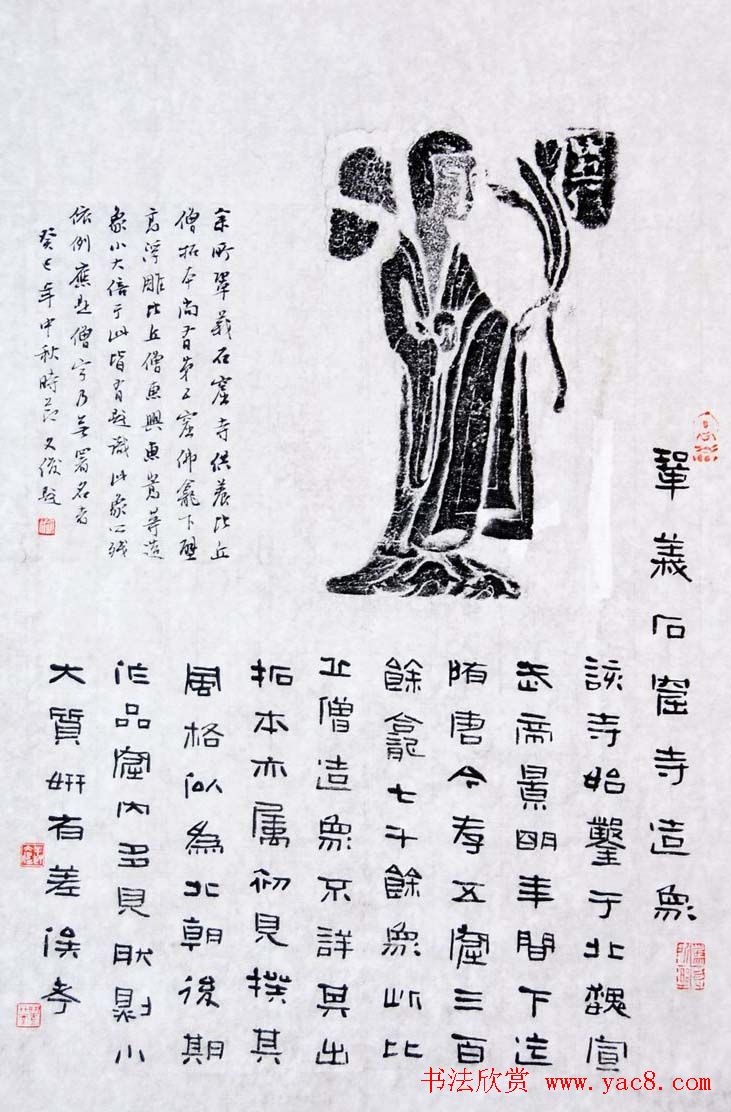 鞏義石窟寺造象
該寺始鑿于北魏宣
武帝景明年間下迄
隋唐今存五窟三百
餘龕七千餘象此比
丘僧造象不詳其出
拓本亦属初見其
風格似為北朝後期
作品窟内多見小
大質姸有差俟考
余所鞏義石窟寺供養比丘
僧拓本尚有第五窟佛龕下壁
高浮雕比丘僧惠興惠嵩等造
象小大倍于此皆有題識此象残
依例應是僧字乃無署名者
癸巳年中秋時節文俊題
书法欣赏 www.yac8.com